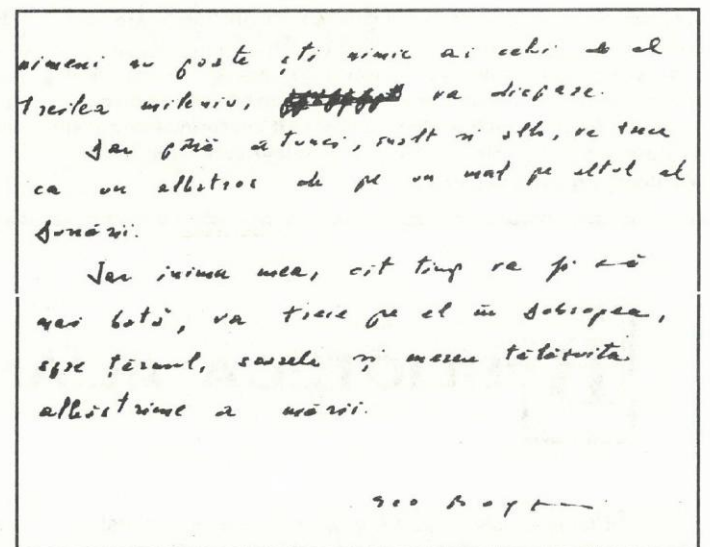 nimeni nu poate ști nimic ai celui de al
treilea mileniu, va dispare.
Iar pînă atunci, înalt și alb, va trece
ca un albatros de pe un mal pe altul al
Dunării.
Iar inima mea, cît timp va fi să
mai bată, va trece pe el în Dobrogea,
spre țărmul, soarele și mereu tălăzuita
albăstrime a mării.
Geo Bogza